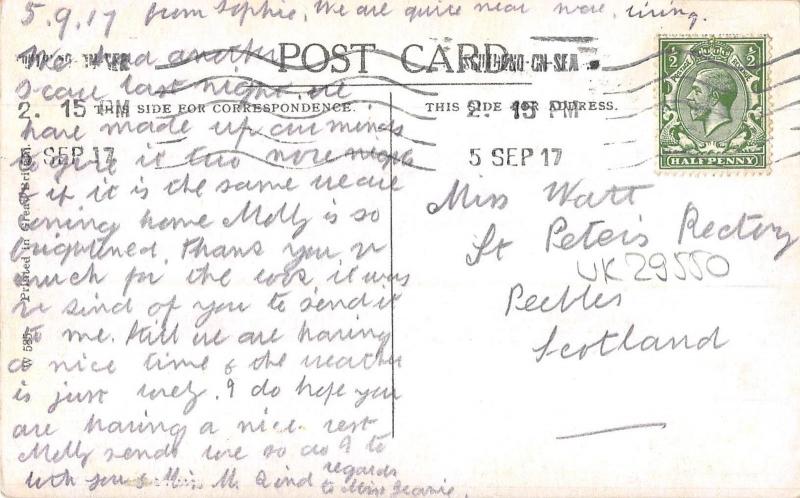 5.9.17 from Sophie. We are quite near
We had another
scare last night. we
have made up our minds
to give it two more nights
& if it is the same we are
coming home Molly is so
frightened. Thank you v
much for the it was
v kind of you to send it
to me. Still we are having
a nice time & the weather
is just lovely. I do hope you
are having a nice rest
Molly sends love so do I to
both you & Miss M. Kind regards
to Miss Jeanie.
POST CARD
THE SIDE FOR CORRESPONDENCE.
THIS SIDE FOR ADDRESS.
2. 15 PM
5 SEP 17
-ON-SEA
2. 15 PM
5 SEP 17
½ ½
POSTAGE
HALFPENNY
Miss Watt
St Peter's Rectory
UK29550
Peebles
Scotland
W 585 Printed in Great Britain.